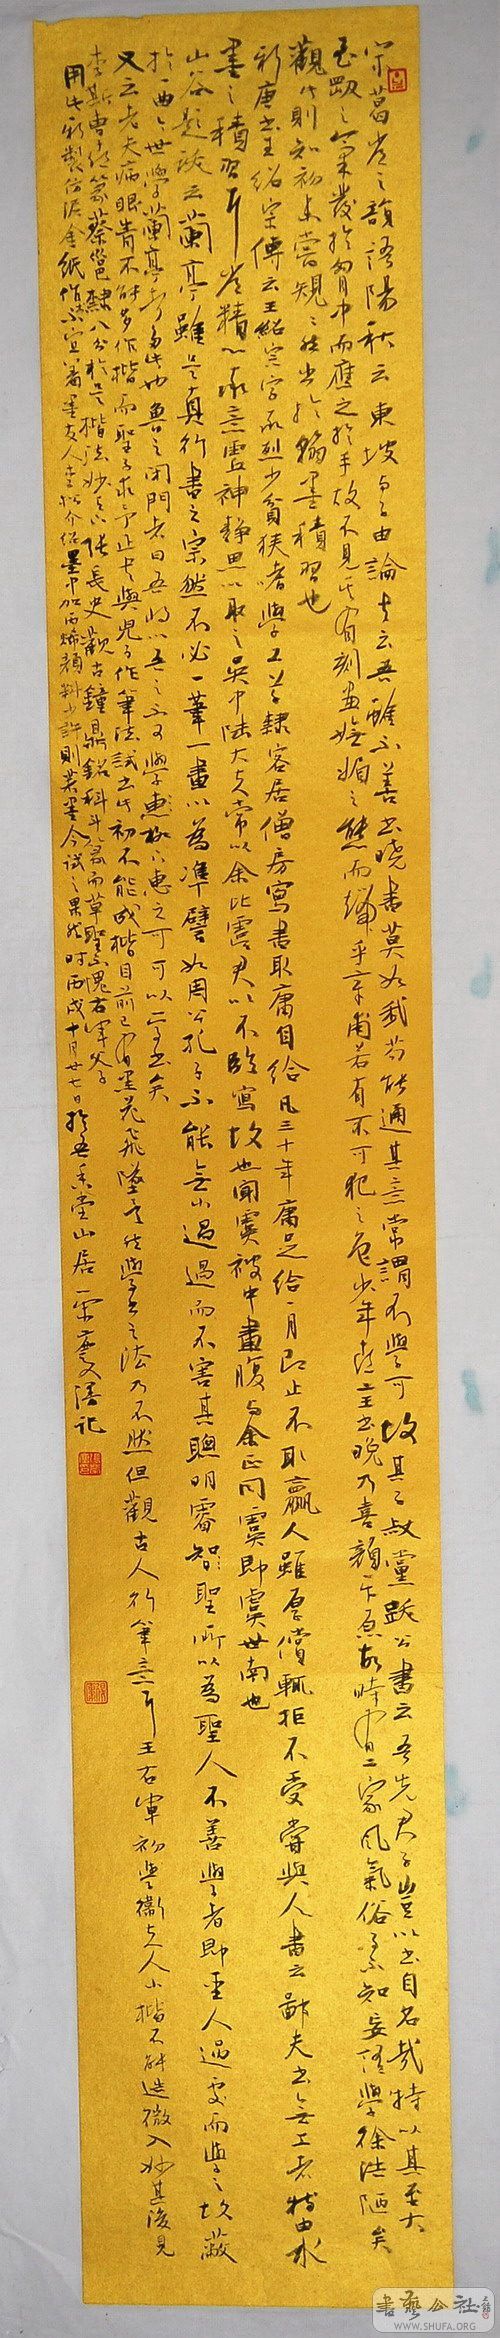 宋葛常之韻語陽秋云東坡與子由論書云吾雖不善書曉書莫如我苟能通其意常謂不學可故其子叔黨跋公書云吾先君子豈以書自名哉特以其至大
至剛之氣發於胸中而應之於手故不見其有刻畫嫵媚之態而端乎章甫若有不可犯之色少年喜二王書晚乃喜顏平原故時有二家風氣俗手不知妄謂學徐浩陋矣
觀此則知初未嘗規規然出於翰墨積習也
新唐書王紹宗傳云王紹宗字承烈少貧狹嗜學工草隸客居僧房寫書取庸自給凡三十年庸足給一月即止不取贏人雖厚償輒拒不受嘗與人書云鄙夫書無工者特由水
墨之積習耳常精心率意虛神靜思以取之吳中陸大夫常以余比虞君以不臨寫故也聞虞被中畫腹與余正同虞即虞世南也
山谷題跋云蘭亭雖是真行書之宗然不必一筆一畫以為準譬如周公孔子不能無小過過而不害其聰明睿智聖所以為聖人不善學者即聖人過處而學之故蔽
於一曲今世學蘭亭者多此也魯之閉門者曰吾將以吾之不可學柳下惠之可可以學書矣
又云老夫病眼昏不能多作楷而聖子求予正書與兒子作筆法試書此初不能成楷目前已有黑花飛墜矣然學書之法乃不然但觀古人行筆意耳王右軍初學衛夫人小楷不能造微入妙其後見
李斯曹喜篆蔡邕隸八分於是楷法妙天下張長史觀古鐘鼎銘科斗篆而草聖不愧右軍父子
用此新製仿泥金紙作書不宜著墨友人介紹墨中加丙烯顏料少許則著墨今試之果然時丙戌十月廿七日於香堂山居 記
書藝公社
WWW.SHUFA.ORG